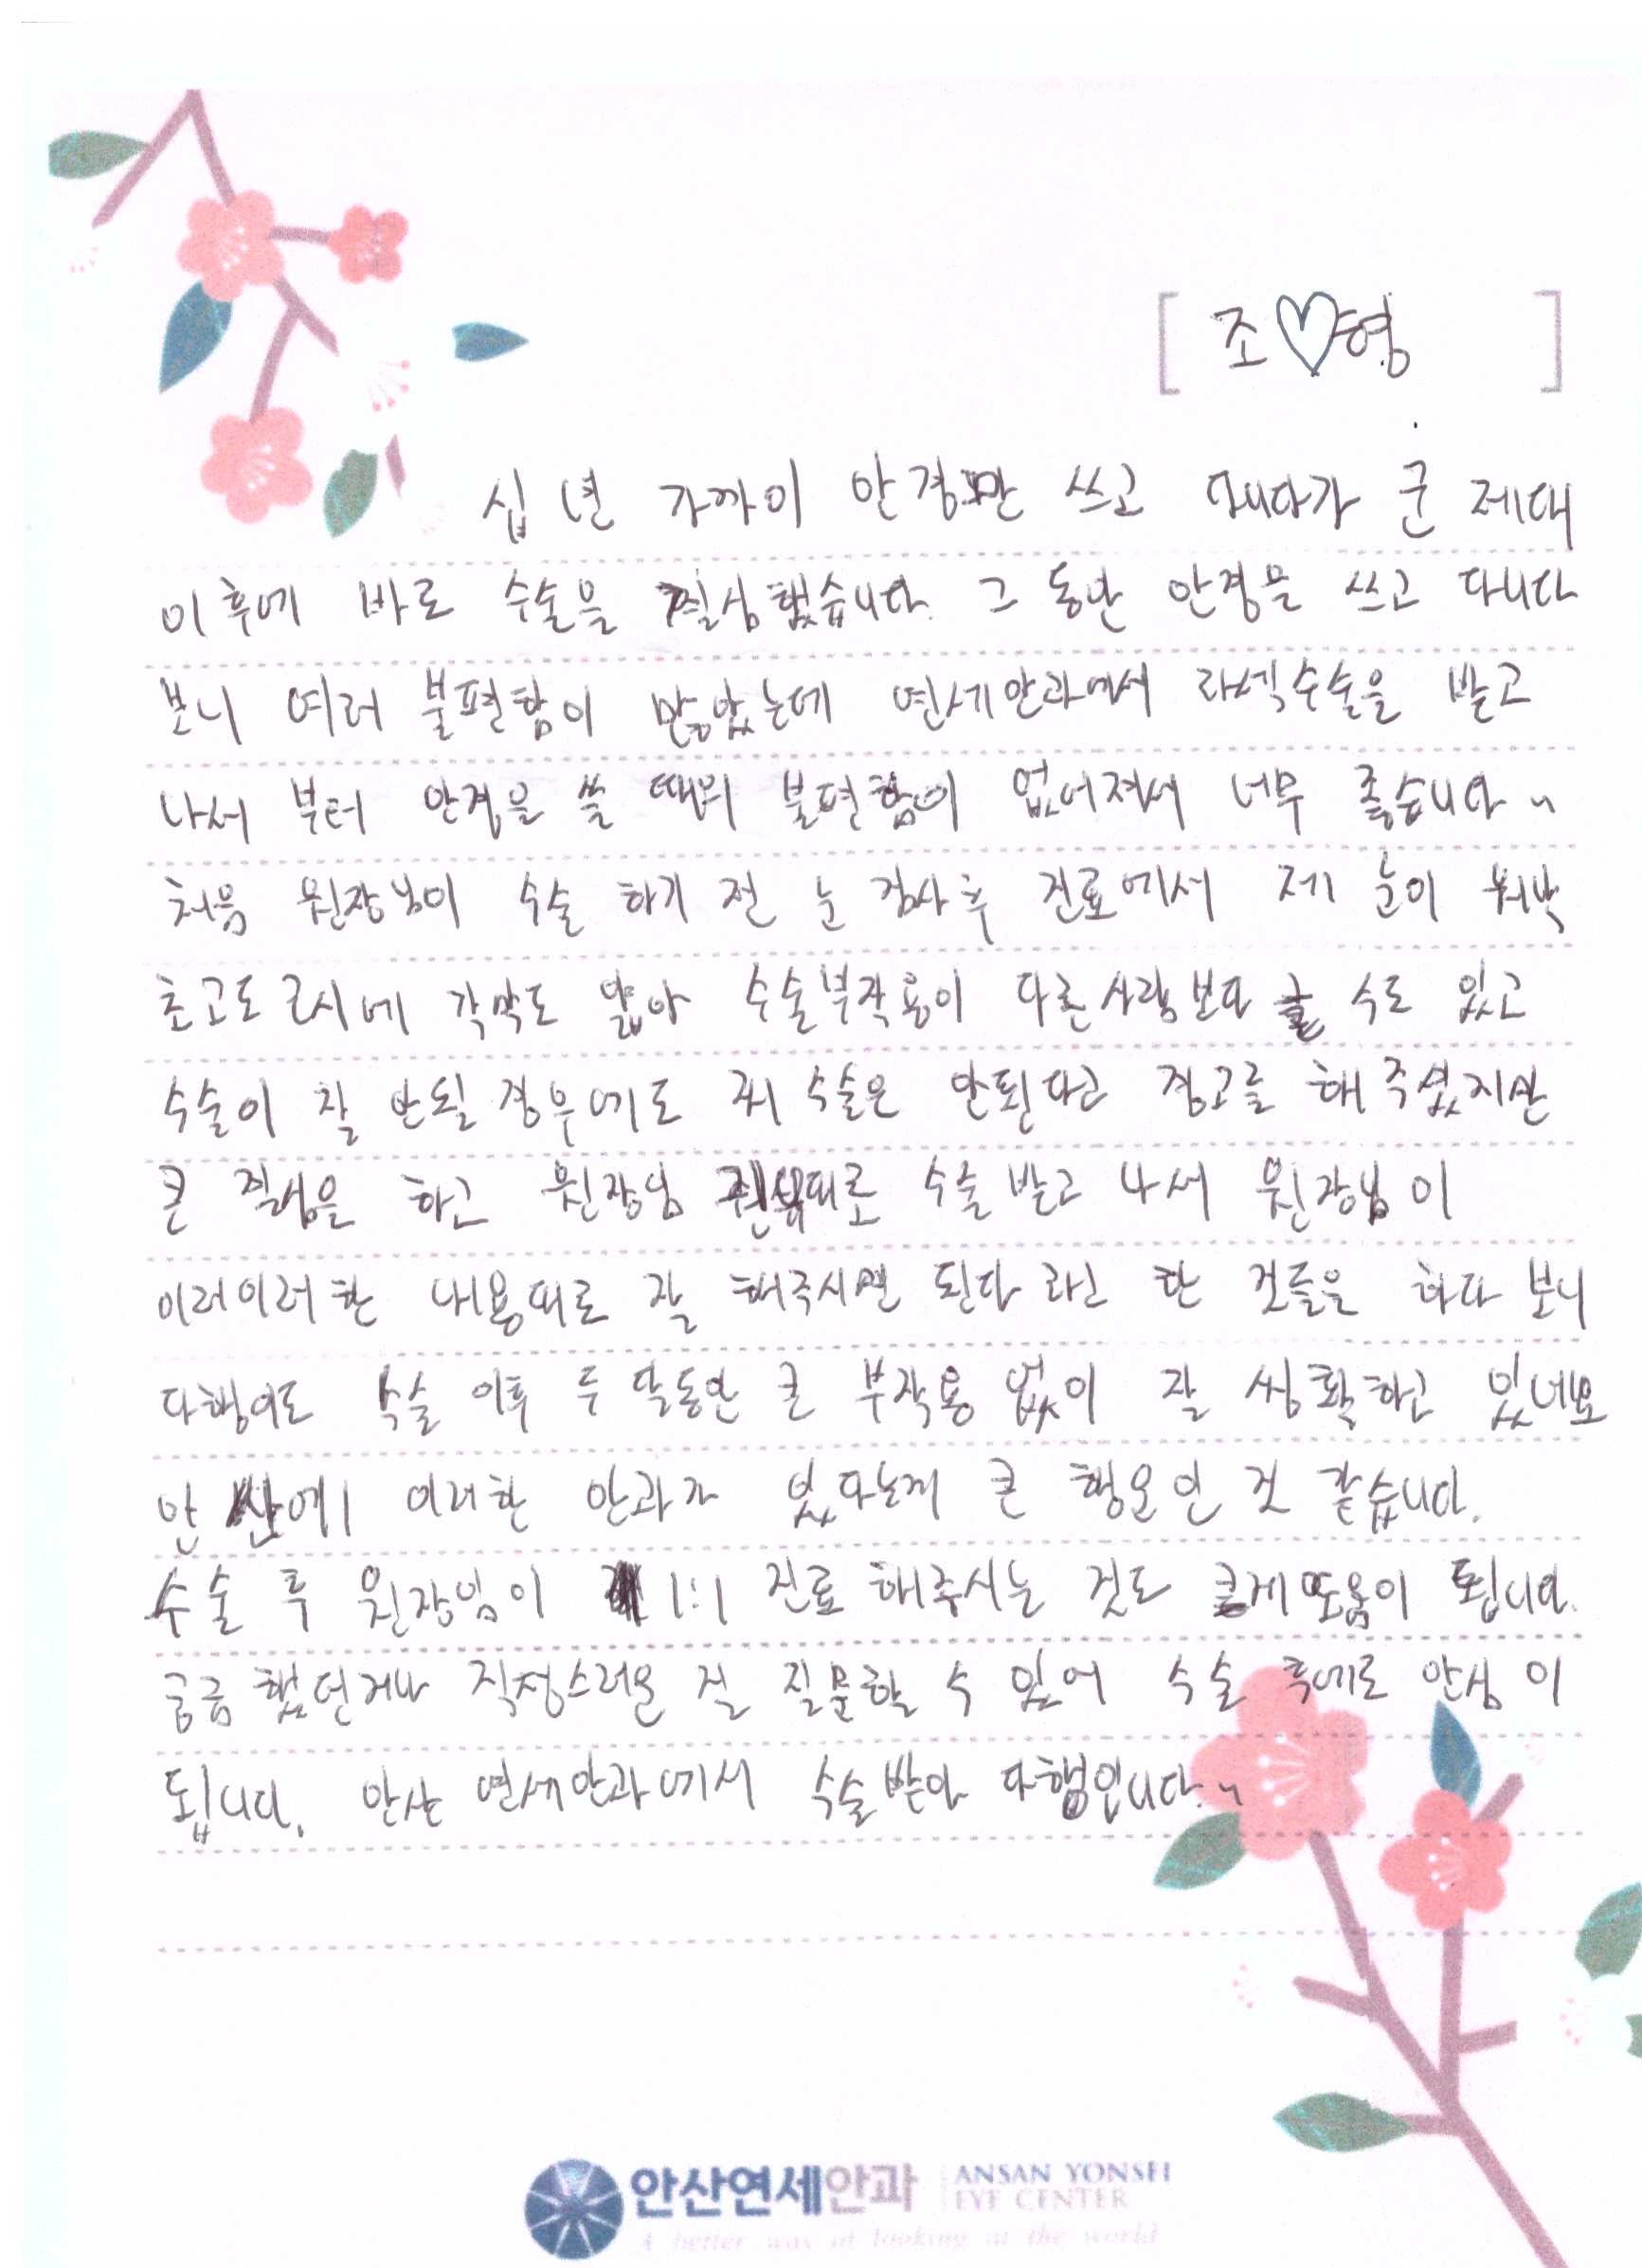 [ 조♡형 ]
십 년 가까이 안경만 쓰고 다니다가 군 제대
이후에 바로 수술을 결심했습니다. 그 동안 안경을 쓰고 다니다
보니 여러 불편함이 많았는데 연세안과에서 라섹수술을 받고
나서 부터 안경을 쓸 때의 불편함이 없어져서 너무 좋습니다~
처음 원장님이 수술 하기 전 눈 검사 후 진료에서 제 눈이
초고도근시에 각막도 얇아 수술부작용이 다른사람보다 클 수도 있고
수술이 잘 안될 경우에도 재 수술은 안된다고 경고를 해 주셨지만
큰 결심을 하고 원장님 수술 받고 나서 원장님이
이러이러한 내용대로 잘 해주시면 된다 라고 한 것들을 하다 보니
다행이도 수술 이후 두 달동안 큰 부작용 없이 잘 생활하고 있네요
안산에 이러한 안과가 있다는게 큰 행운인 것 같습니다.
수술 후 원장님이 1:1 진료 해주시는 것도 크게 도움이 됩니다.
궁금했던거나 걱정스러운 걸 질문할 수 있어 수술 후에도 안심 이
됩니다. 안산 연세안과에서 수술받아 다행입니다.~
안산연세안과 ANSAN YONSEI
EYE CENTER
A better way of looking at the world